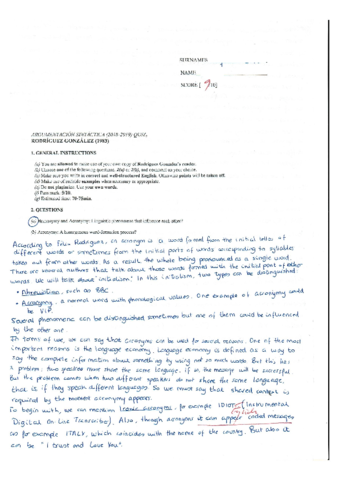 SURNAMES:
NAME:
SCORE [ 9/10]
ARGUMENTACIÓN SINTÁCTICA (2018-2019) QUIZ,
RODRÍGUEZ GONZÁLEZ (1993)
1. GENERAL INSTRUCTIONS
(a) You are allowed to make use of your own copy of Rodríguez González's reader.
(b) Choose one of the following questions, and respond to your choice.
(c) Make sure you write in correct and well-structured English. Otherwise points will be taken off.
(d) Make use of multiple examples when necessary or appropriate.
(e) Do not plagiarize. Use your own words.
(f) Pass mark: 5/10.
(g) Estimated time: 70-75min.
2. QUESTIONS
Acronymy and Antonymy: Linguistic phenomena that influence each other?
(b) Acronyms: A homogeneous word-formation process?
According to Félix Rodríguez, an acronym is a word formed from the initial letter of
different words or sometimes from the initial parts of words corresponding to syllables
taken out from other words. As a result the whole being pronounced as a single word.
There are several authors that talk about those words formed with the initial point of other
words. We will talk about "initialism". In this initialism, two types can be distinguished:
• Abbreviation, such as BBC.
• Acronymy, a normal word with phonological values. One example of acronymy could
be VIP.
Several phenomena can be distinguished sometimes but one of them could be influenced
by the other one.
In terms of use, we can say that acronyms can be used for several reasons. One of the most
important reasons is the language economy. Language economy is defined as a way to
say the complete information about something by using not so much words. But this has
a problem: two people must share the same language, if so, the message will be successful
But the problem comes when two different speakers do not share the same language,
that is if they speak different languages. So we must say that shared context is
required by the moment acronymy appears.
To begin with, we can mention acronyms, for example IDIOT (Instrumental
Digital On Line Transcribe). Also, through acronyms it can appear coded messages
as for example ITALY, which coincides with the name of the country. But also it
can be "I trust and Love You".